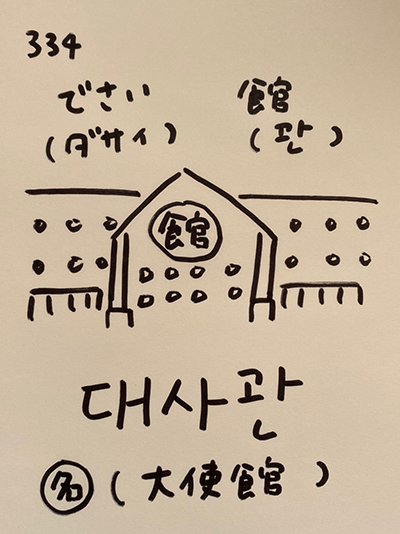 334
でさい 館
(ダサイ) (관)
館
대사관
名 (大使館)